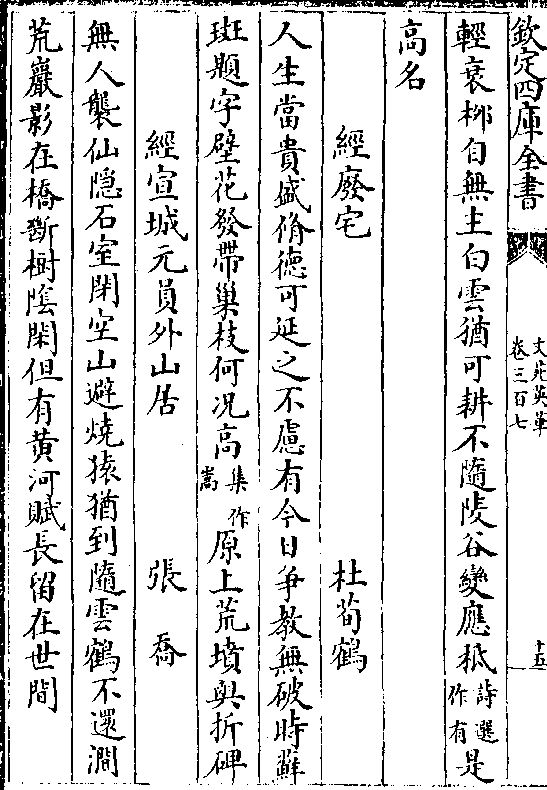 欽定四庫全書
文苑英華
卷三百七
十五
輕衰桞自無主白雲猶可耕不隨陵谷變應秪詩選作有是
高名
經廢宅
杜荀鶴
人生當貴盛脩徳可延之不慮有今日爭教無破時蘚
斑題字壁花發帶巢枝何况高集作嵩原上荒墳與折碑
經宣城元員外山居
張喬
無人襲仙隠石室閉空山避燒猿猶到隨雲鶴不還澗
荒巖影在橋斷樹隂閑但有黄河賦長留在世間